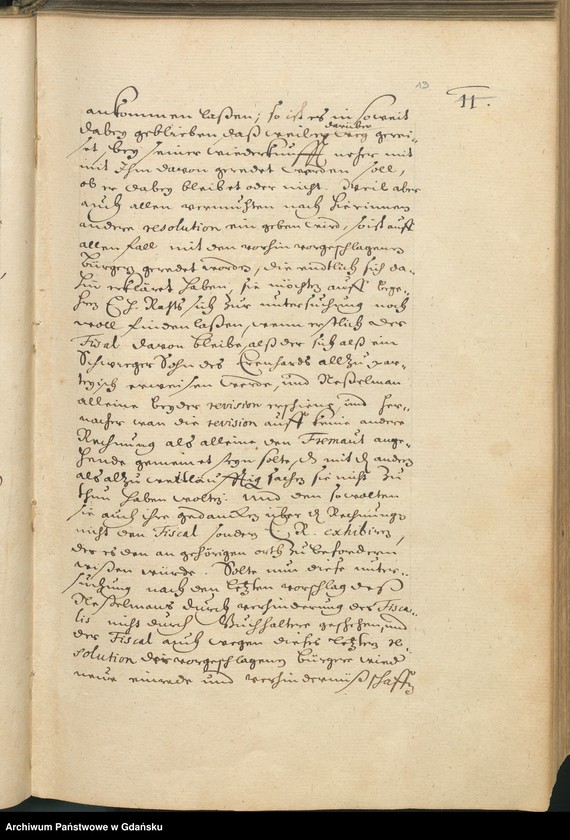 13
11.
ankommen laßen; so ist es in soweit
dabey geblieben daß weil er darüber weg gerei-
set bey seiner wiederkunfft neher mit
mit Ihm davon geredet werden soll,
ob er dabey bleibet oder nicht. Weil aber
auch allen vermuhten nach hierinnen
andere resolution ein geben wird, so ist auff
allen fall mit den vorhin vorgeschlagenen
Bürgern geredet worden, die endtlich sich da-
hin erkläret haben, sie möchten auff bege-
hren E. H. Rahts sich zur untersuchung noch
woll finden laßen, wenn erstlich der
Fiscal davon bleibe, alß der sich alß ein
Schwieger Sohn des allzu par-
teyisch erweisen werde, und Neßelman
alleine bey der revision erschiene, und her-
nacher wan die revision auff keine andere
Rechnung als alleine den Tremaut ange-
hende gemeinet seyn solte, mit andern
als allzu weitläufftig sachen sie nicht zu
thun haben wolten. Und den so wolten
sie auch ihre gedancken über Rechnunge
nicht den Fiscal sondern E. R. exhibiren,
der es den an gehörigen orth zu befodern
wißen würde. Solte nun diese unter-
suchung nach den letzten vorschlag deß
Neßelmans durch verhinderung des Fisca-
lis nicht durch Buchhaltere geschehen, und
der Fiscal auch wegen dieses letzten re-
solution der vorgeschlagenen bürgere wied
neue einrede und verhinderniß schaffen
Archiwum Państwowe w Gdańsku